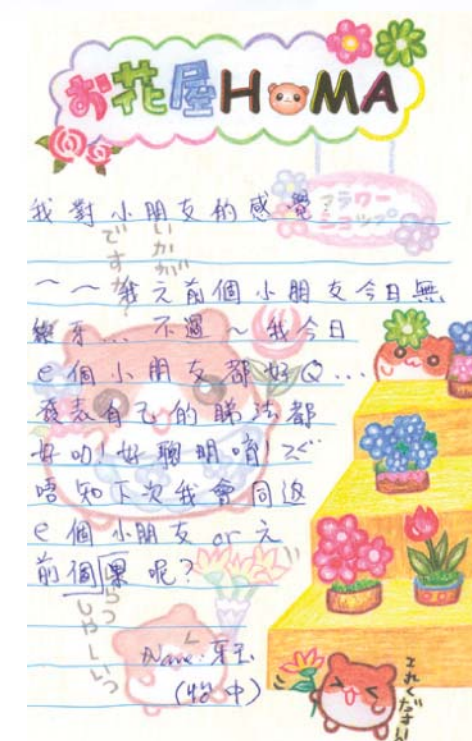 お花屋HOMA
フラワー
ショップ
我對小朋友的感覺
いかが
ですか?
~~我之前個小朋友今日無
黎牙...不過~我今日
e個小朋友都好Q...
發表自己的睇法都
好叻!好聰明唷!
唔知下次我會同返
e個小朋友 or 之
前個果呢?
Name:牙玉
(怡中)
これください